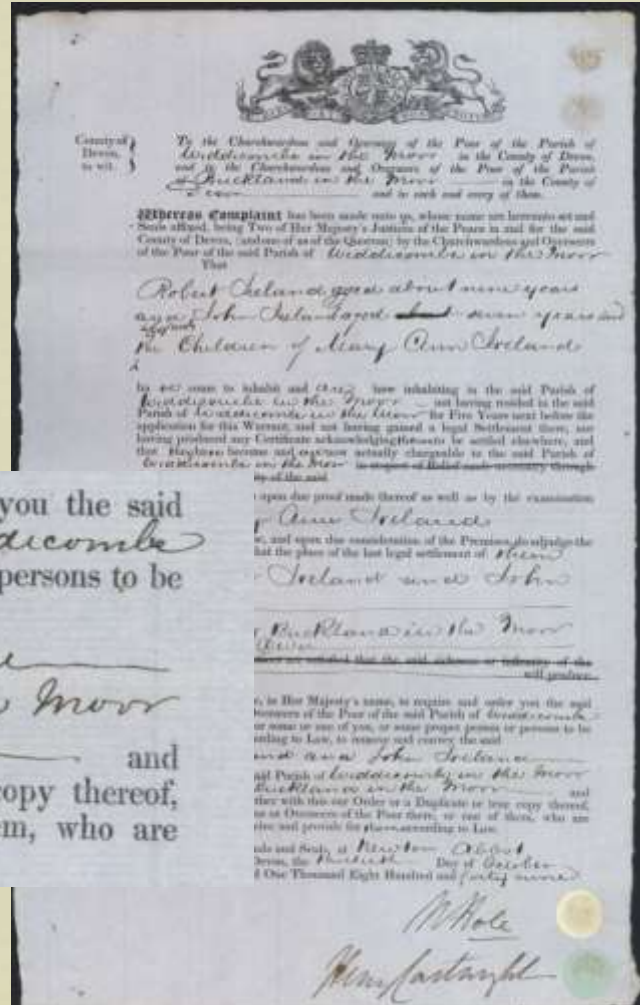 County of
Devon,
to wit.
To the Churchwardens and Overseers of the Poor of the Parish of
Widdicombe in the Moor in the County of Devon,
and to the Churchwardens and Overseers of the Poor of the Parish
of Buckland in the Moor in the County of
Devon and to each and every of them.
Whereas Complaint has been made unto us, whose names are hereunto set and
Seals affixed, being Two of Her Majesty's Justices of the Peace in and for the said
County of Devon, (and one of us of the Quorum) by the Churchwardens and Overseers
of the Poor of the said Parish of Widdicombe in the Moor
That
Robert Ireland aged about nine years
and John Ireland aged seven years and
the Children of Mary Ann Ireland
come to inhabit and are now inhabiting in the said Parish of
Widdicombe in the Moor not having resided in the said
Parish of Widdicombe in the Moor for Five Years next before the
application for this Warrant, and not having gained a legal Settlement there, nor
having produced any Certificate acknowledging them to be settled elsewhere, and
that become and are now actually chargeable to the said Parish of
Widdicombe in the Moor in respect of Relief made necessary through
ty of the said
upon due proof made thereof as well as by the examination
Ann Ireland
and upon due consideration of the Premises, do adjudge the
that the place of the last legal settlement of them
Ireland and John
Buckland in the Moor
Devon
are satisfied that the said sickness or infirmity of the
will produce
in Her Majesty's name, to require and order you the said
Overseers of the Poor of the said Parish of Widdicombe
or some or one of you, or some proper person or persons to be
according to Law, to remove and convey the said
and and John Ireland
said Parish of Widdicombe in the Moor
Buckland in the Moor and
together with this our Order or a Duplicate or true copy thereof,
or Overseers of the Poor there, or one of them, who are
and provide for them according to Law.
and Seals, at Newton Abbot
Devon, the Day of October
One Thousand Eight Hundred and forty
Henry Cartwright
you the said
dicombe
persons to be
Moor
and
copy thereof,
em, who are